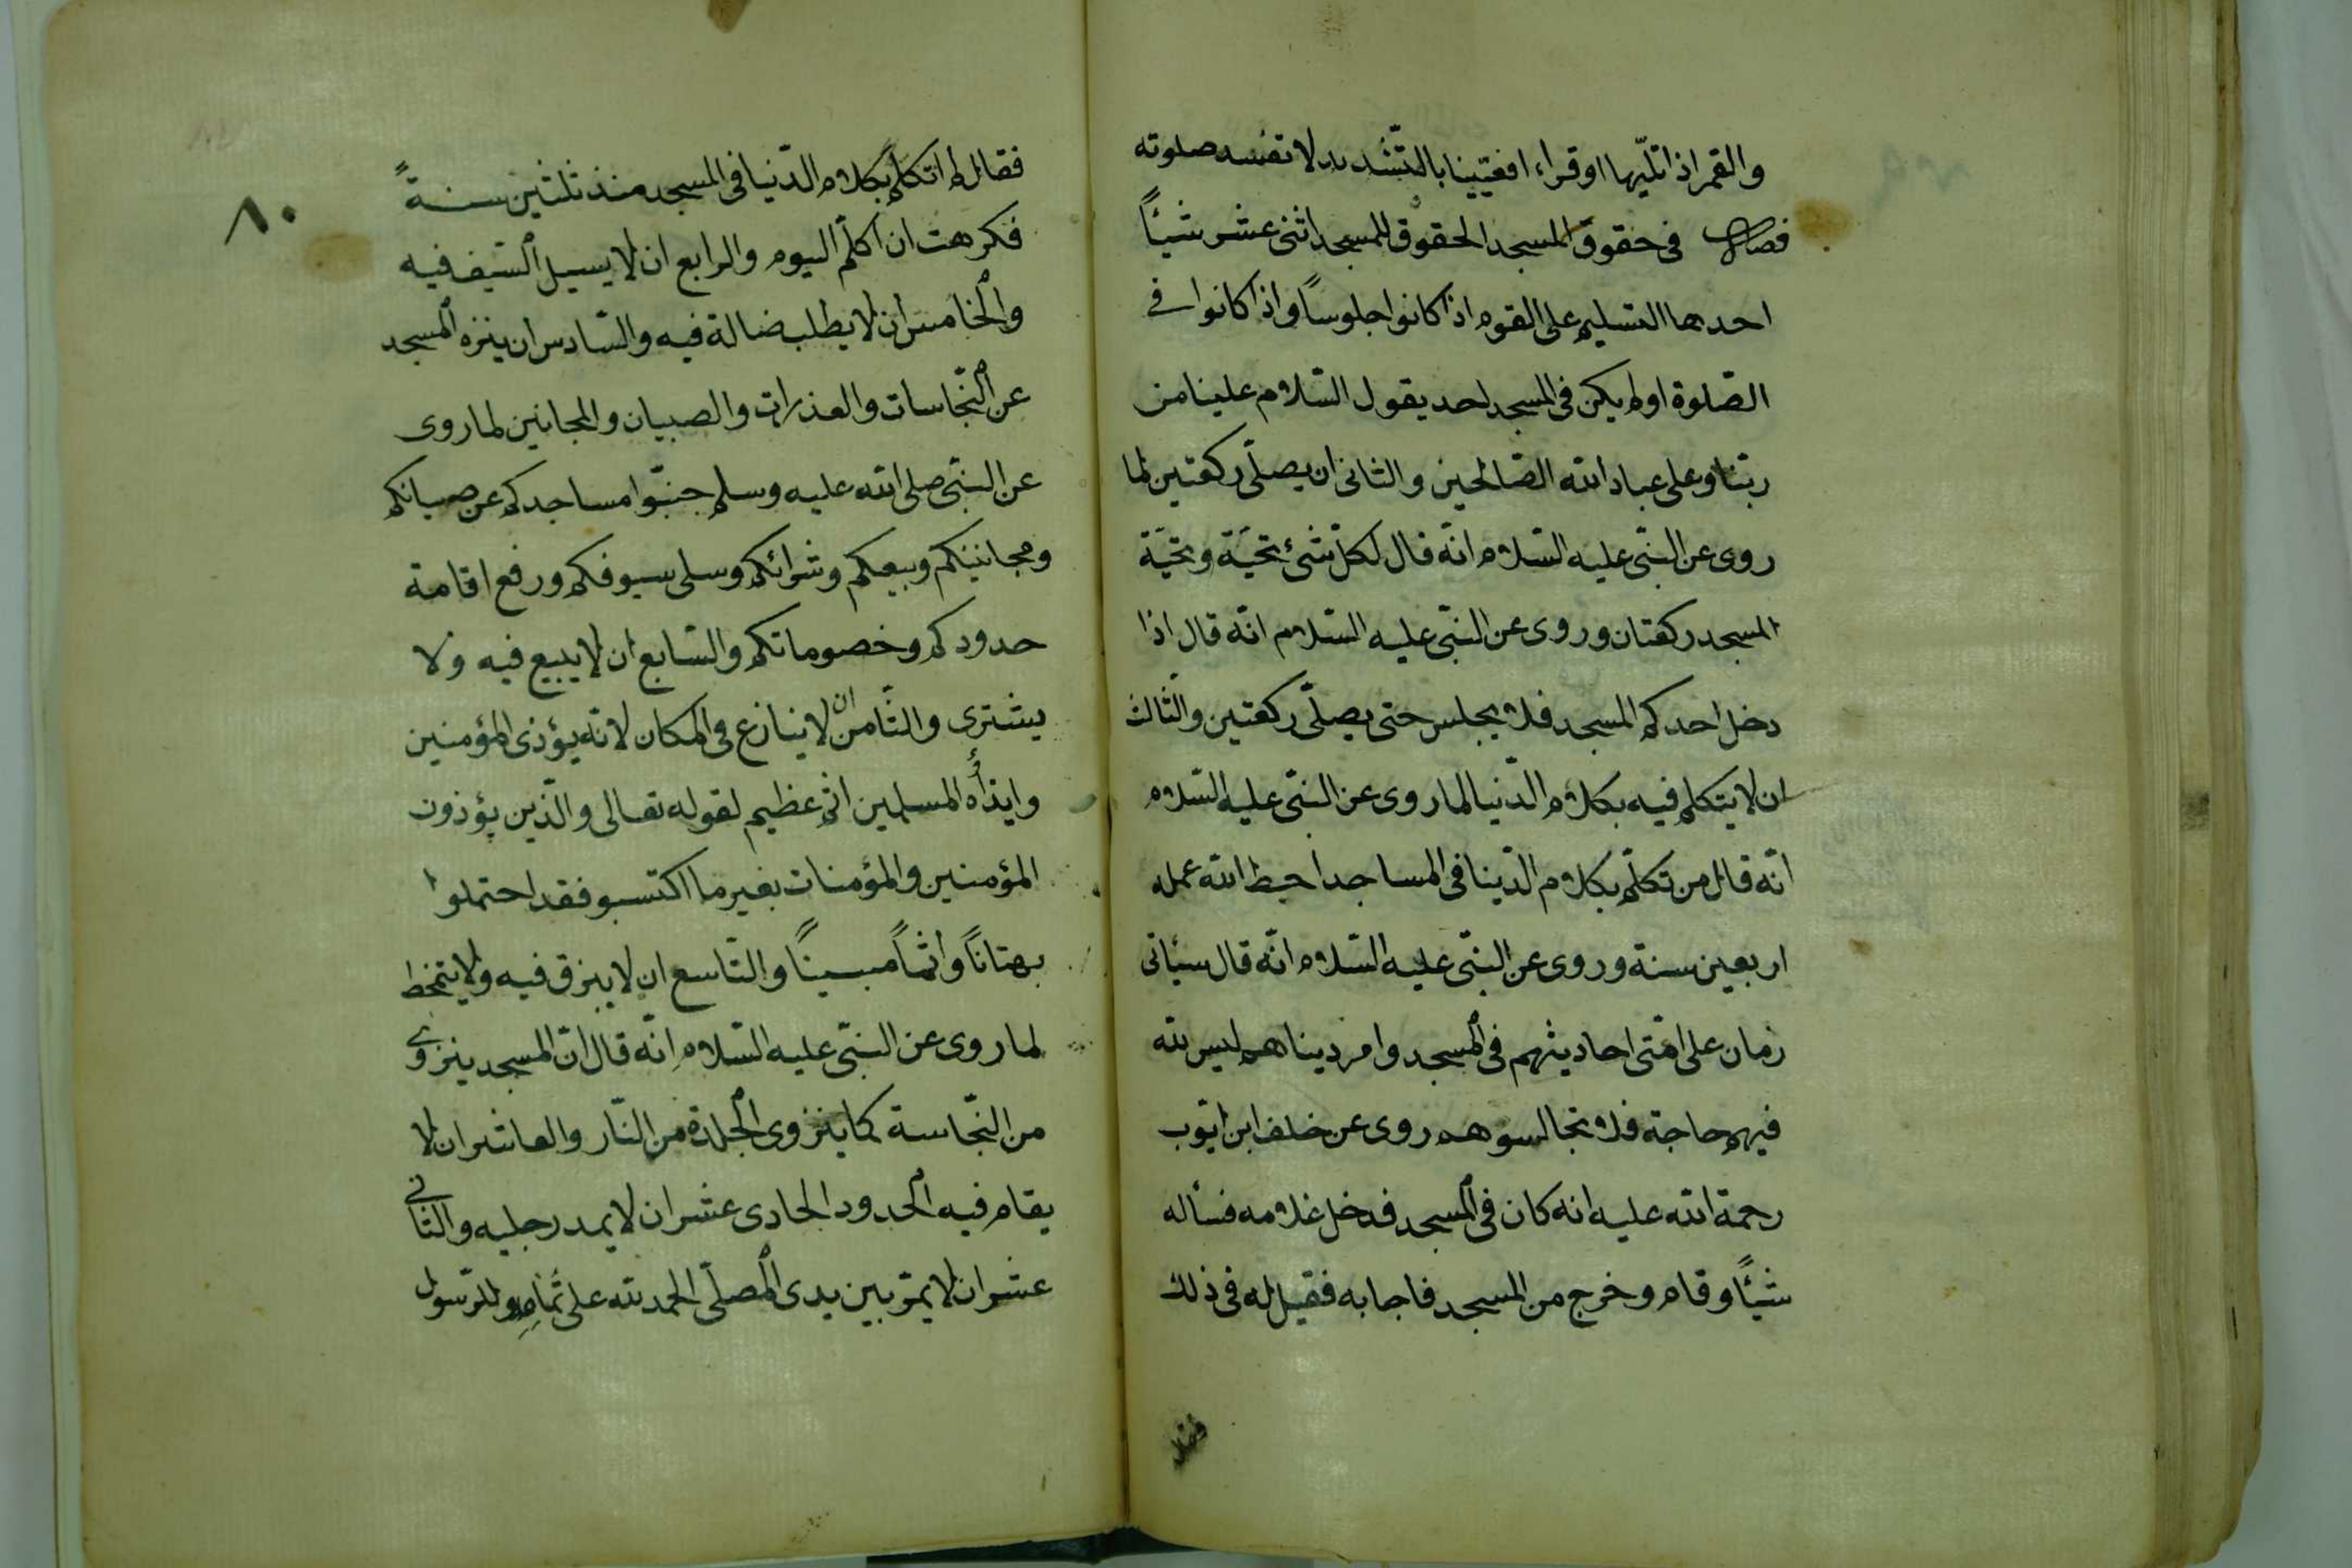 والقمر اذا تليّها او قراء افعيّينا بالتّشديد لا تفسد صلوته
فصل فى حقوق المسجد الحقوق للمسجد اثنى عشر شيئاً
احدها التسليم على القوم اذا كانوا جلوساً واذا كانوا فى
الصّلوة اولم يكن فى المسجد احد يقول السّلام علينا من
ربّنا وعلى عباد الله الصّالحين والثانى ان يصلّى ركعتين لما
روى عن النبّى عليه السّلام انّه قال لكلّ شئ تحيّة وتحيّة
المسجد ركعتان وروى عن النبّى عليه السّلام انّه قال اذا
دخل احدكم المسجد فلا يجلس حتى يصلّى ركعتين والثّالث
ان لا يتكلم فيه بكلام الدّنيا لما روى عن النبّى عليه السّلام
انّه قال من تكلّم بكلام الدّينا فى المساجد احبط الله عمله
اربعين سنة وروى عن النبّى عليه السّلام انّه قال سيئاتى
زمان على امّتى احاديثهم فى المسجد وامر ديناهم ليس لله
فيهم حاجة فلا تجالسوهم روى عن خلف ابن ايّوب
رحمة الله عليه انه كان فى المسجد فدخل غلامه فسأله
شيئاً وقام وخرج من المسجد فاجابه فقيل له فى ذلك
فقال
٨٠
فقال لم اتكلم بكلام الدّنيا فى المسجد منذ ثلثين سنةً
فكرهت ان اكلّم اليوم والرابع ان لا يسيل السّيف فيه
والخامس ان لا يطلب ضالة فيه والسّادس ان ينزه المسجد
عن النّجاسات والعذرات والصبيان والمجانين لما روى
عن النبّى صلى الله عليه وسلم جنبّوا مساجدكم عن صبيانكم
ومجانينكم وبيعكم وشرائكم وسلى سيوفكم ورفع اقامة
حدودكم وخصوماتكم والسّابع ان لا يبيع فيه ولا
يشترى والثّامن ان لا ينازع فى المكان لانّه يؤذى المؤمنين
وايذأه المسلمين اثم عظيم لقوله تعالى والّذين يؤذون
المؤمنين والمؤمنات بغير ما اكتسبو فقد احتملوا
بهتاناً واثماً مبيناً والتّاسع ان لا يبزق فيه ولا يتمخط
لما روى عن النبّى عليه السّلام انّه قال انّ المسجد ينزوى
من النّجاسة كما ينزوى الجلدة من النّار والعاشر ان لا
يقام فيه الحدود الحادى عشر ان لا يمد رجليه والثانى
عشر ان لا يمرّ بين يدى المصلّى الحمد لله على تمامه وللرّسول